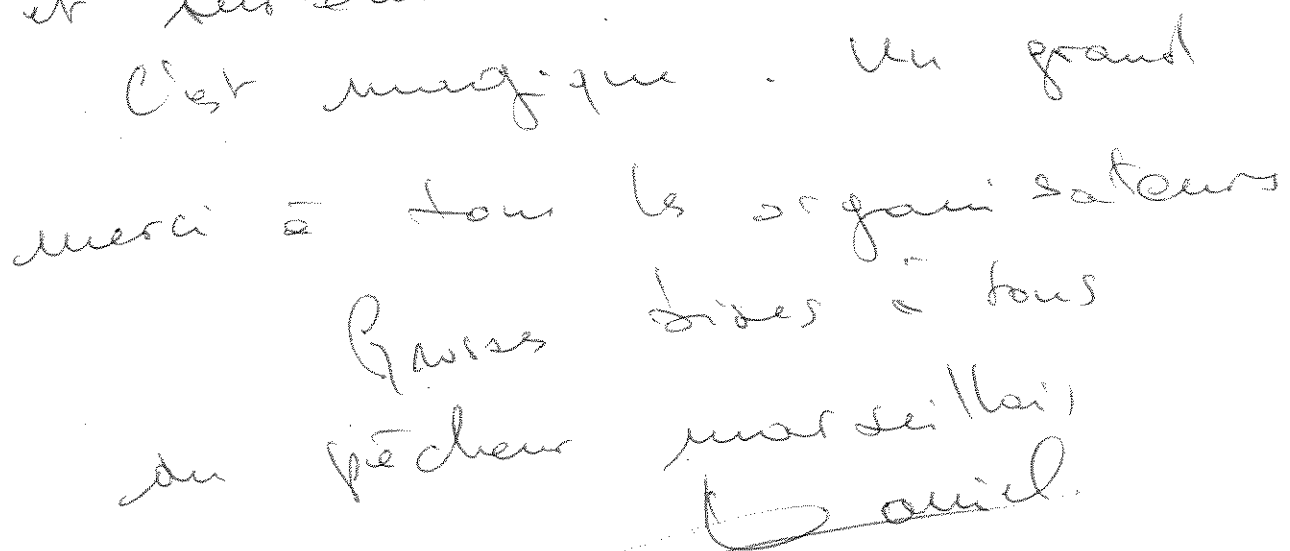 et
C'est magique. Un grand
merci à tous les organisateurs
Grosses bises à tous
du pêcheur marseillais
Daniel.